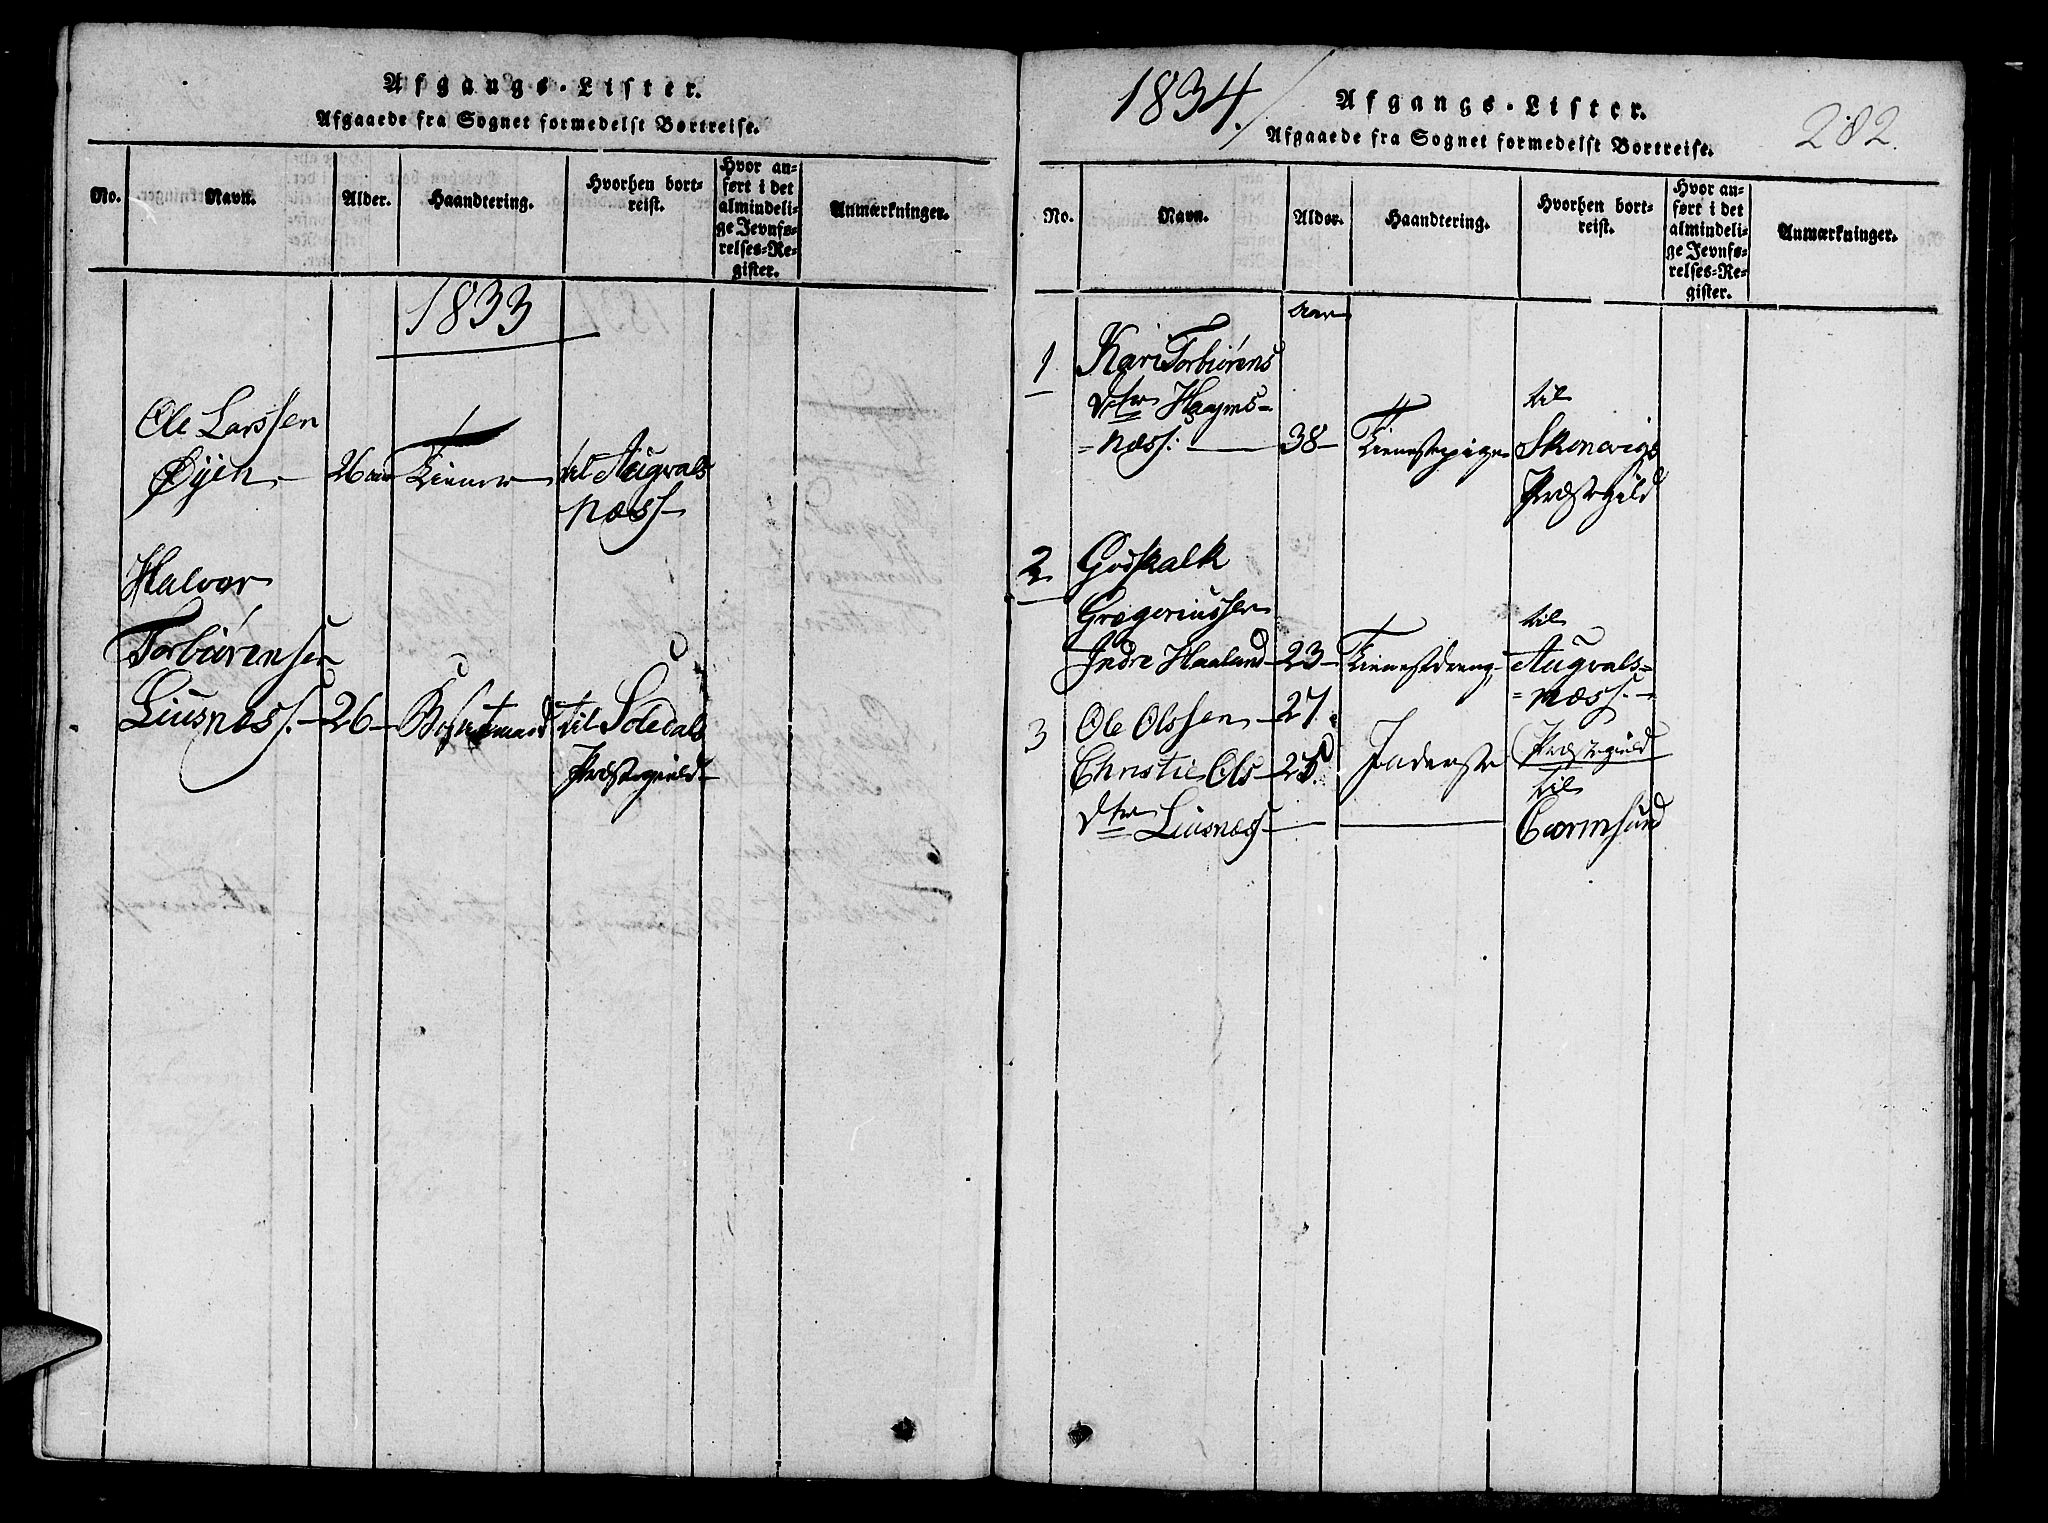 Afgangs-Lister.
Afgaaede fra Sognet formedelst Bortreise.
No.
Navn.
Alder.
Haandtering.
Hvorhen bort-
reist.
Hvor an-
ført i det
almindeli-
ge Jevnfø-
relses-Re-
gister.
Anmærkninger.
1833
Ole Larssen
Øyen - 26 aar Tiener til Augvals
næss -
Halvor
Torbiørensen
Liusnæss. - 26 - til
Præstegield -
1834.
Afgangs-Lister.
Afgaaede fra Sognet formedelst Bortreise.
282.
No.
Navn.
Alder.
Haandtering.
Hvorhen bort-
reist.
Hvor an-
ført i det
almindeli-
ge Jevnfø-
relses-Re-
gister.
Anmærkninger.
Aar
1 Kari Torbiørens
dtr til
næss: - 38 - Tienestepige Skonevigs
Præstegield
2 Godskalk
Gregoriussen til
Indre Haaland - 23 - Tienestdreng Augvals=
=næss. -
Præstegield
3 Ole Olssen - 27.
Christie Ols - 25. Inderste til
dtr Liusnæss -